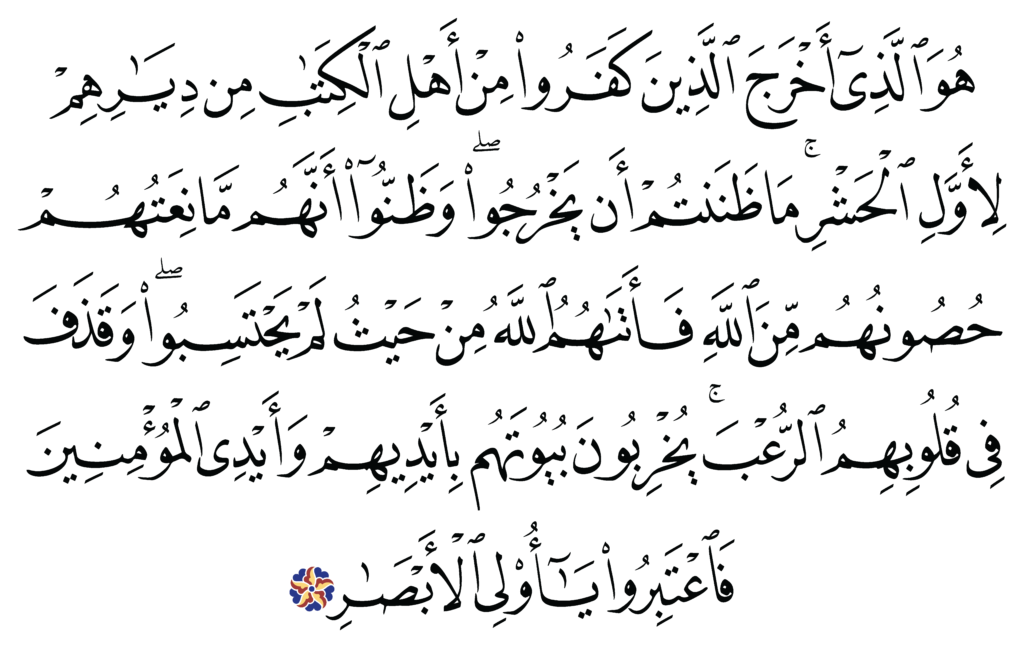 هُوَ ٱلَّذِىٓ أَخْرَجَ ٱلَّذِينَ كَفَرُوا۟ مِنْ أَهْلِ ٱلْكِتَٰبِ مِن دِيَٰرِهِمْ
لِأَوَّلِ ٱلْحَشْرِ ۚ مَا ظَنَنتُمْ أَن يَخْرُجُوا۟ ۖ وَظَنُّوٓا۟ أَنَّهُم مَّانِعَتُهُمْ
حُصُونُهُم مِّنَ ٱللَّهِ فَأَتَىٰهُمُ ٱللَّهُ مِنْ حَيْثُ لَمْ يَحْتَسِبُوا۟ ۖ وَقَذَفَ
فِى قُلُوبِهِمُ ٱلرُّعْبَ ۚ يُخْرِبُونَ بُيُوتَهُم بِأَيْدِيهِمْ وَأَيْدِى ٱلْمُؤْمِنِينَ
فَٱعْتَبِرُوا۟ يَٰٓأُو۟لِى ٱلْأَبْصَٰرِ